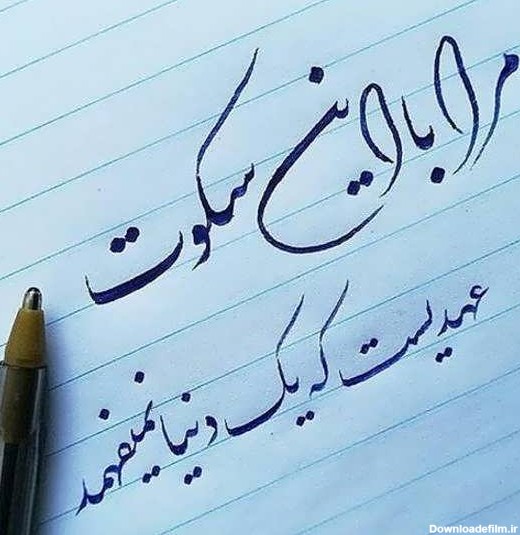 مرا با این سکوت
عهدیست که یک دنیا نمیفهمد
Downloadefilm.ir